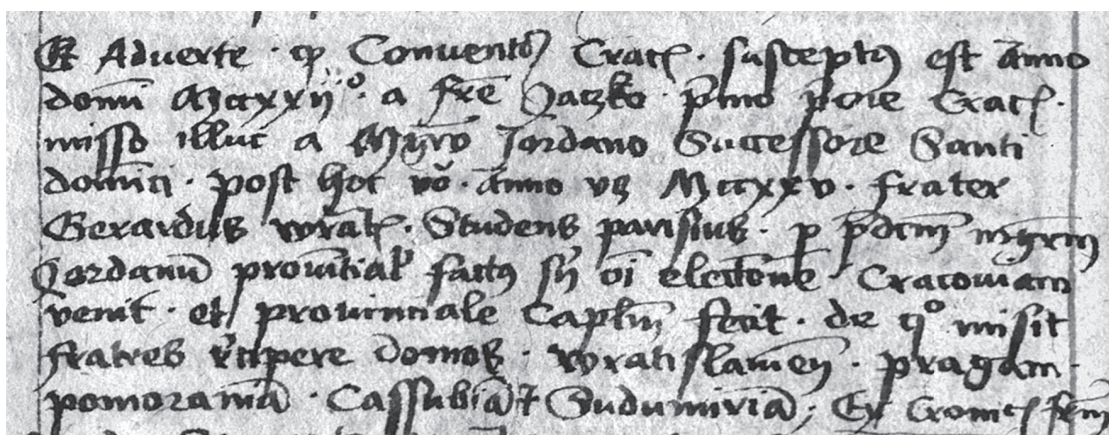 Et Adverte · qp Conventꝰ Cracꝭ · susceptꝰ est āno
domī Mccxxijº · a fre Jaczko · pmo pore Cracꝭ ·
misso illuc a Mgro Jordano Successore Santi
domici · post hoc vo · anno vꝫ Mccxxv · frater
Gerardus wratꝭ · Studens parisius · p pdcm mgrm
Jordanū provincial factꝰ sn oi electone Cracoviam
venit · et provinciale Caplm fecit · de qº misit
fratres recipere domos · wratislamen · pragam ·
pomoraniā · Cassubiā et Sudumiriā · Ex Cronicꝭ frm